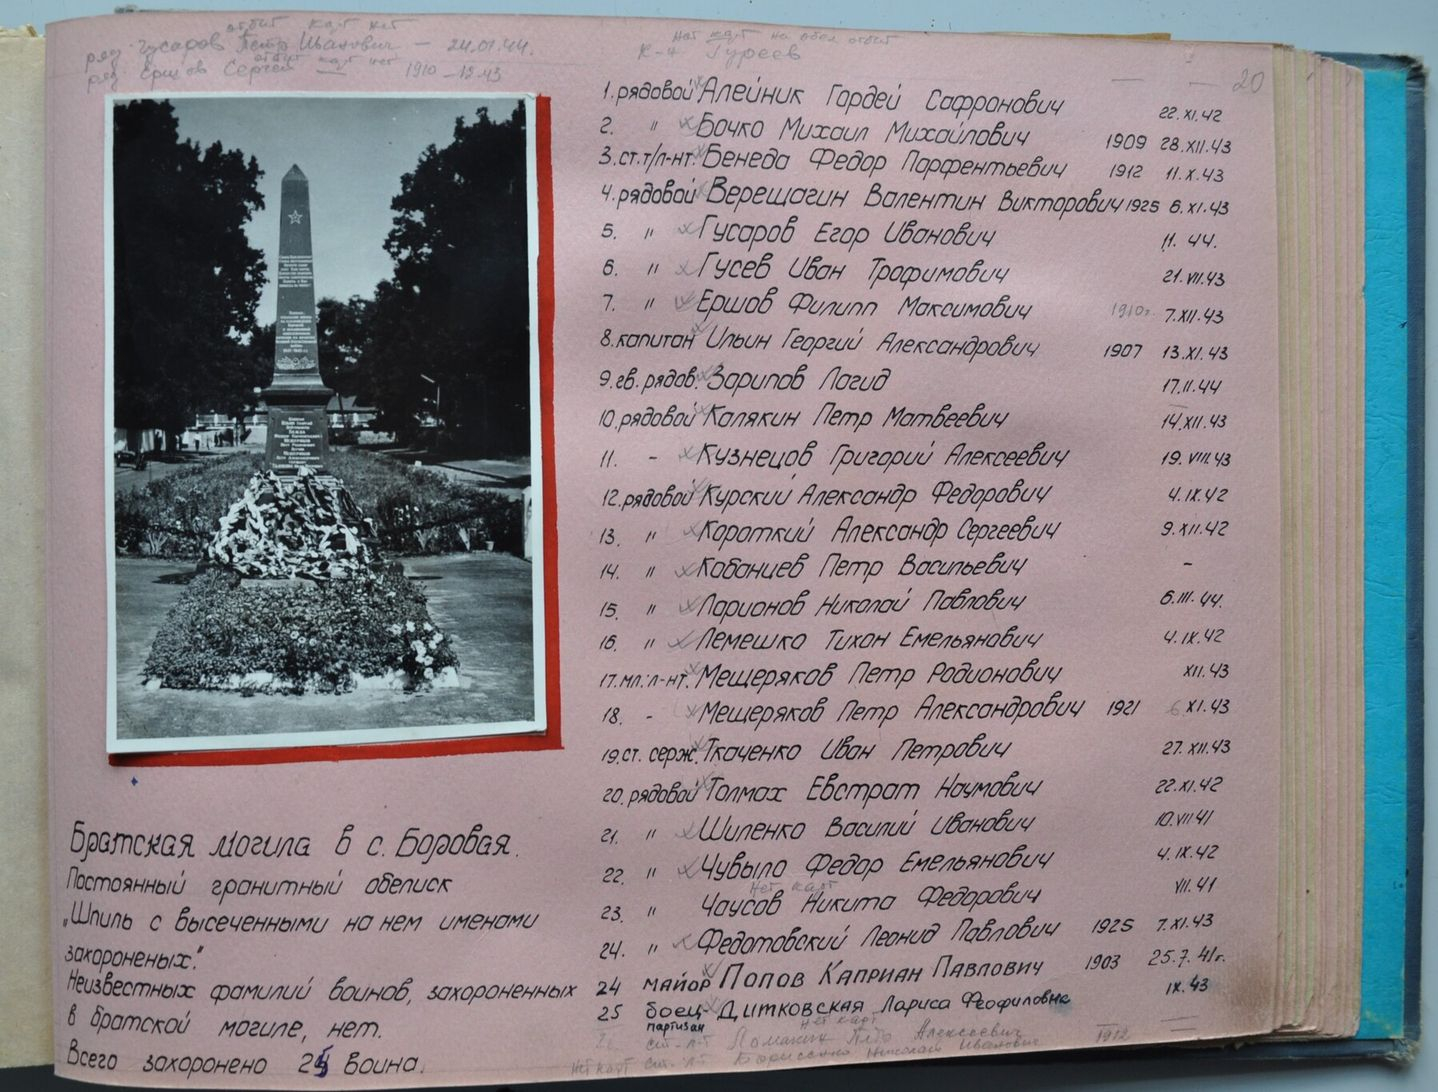 отбит карт нет
ряд. Гусаров Петр Иванович — 24.01.44.
отбит карт нет
ряд. Ершов Сергей — 1910 — 12.43
Братская могила в с. Боровая.
Постоянный гранитный обелиск
„Шпиль с высеченными на нем именами
захороненых".
Неизвестных фамилий воинов, захороненных
в братской могиле, нет.
Всего захоронено 25 воина.
Нет карт на обел отбит
к-н Гуреев
20
1. рядовой Алейник Гордей Сафронович 22.XI.42
2. " Бочко Михаил Михайлович 1909 28.XII.43
3. ст.т/л-нт. Бенеда Федор Порфентьевич 1912 11.X.43
4. рядовой Верещагин Валентин Викторович 1925 6.XI.43
5. " Гусаров Егор Иванович 11.44.
6. " Гусев Иван Трофимович 21.VII.43
7. " Ершов Филипп Максимович 1910г. 7.XII.43
8. капитан Ильин Георгий Александрович 1907 13.XI.43
9. гв. рядов. Зарипов Лагид 17.11.44
10. рядовой Калякин Петр Матвеевич 14.XII.43
11. - Кузнецов Григорий Алексеевич 19.VIII.43
12. рядовой Курский Александр Федорович 4.IX.42
13. " Короткий Александр Сергеевич 9.XII.42
14. " Кабанцев Петр Васильевич -
15. " Ларионов Николай Павлович 6.III.44.
16. " Лемешко Тихон Емельянович 4.IX.42
17. мл. л-нт. Мещеряков Петр Родионович XII.43
18. - Мещеряков Петр Александрович 1921 6.XI.43
19. ст. серж. Ткаченко Иван Петрович 27.XII.43
20. рядовой Толмах Евстрат Наумович 22.XI.42
21. " Шиленко Василий Иванович 10.VII41
22. " Чувыло Федор Емельянович 4.IX.42
Нет карт
23. " Чаусов Никита Федорович VII.41
24. " Федотовский Леонид Павлович 1925 7.XI.43
24 майор Попов Каприан Павлович 1903 25.7.41г.
25 боец партизан Дитковская Лариса Феофиловна IX.43
нет карт
ст. л-т Алексеевич 1912
Нет карт ст. л-т Борисенко Николай Иванович